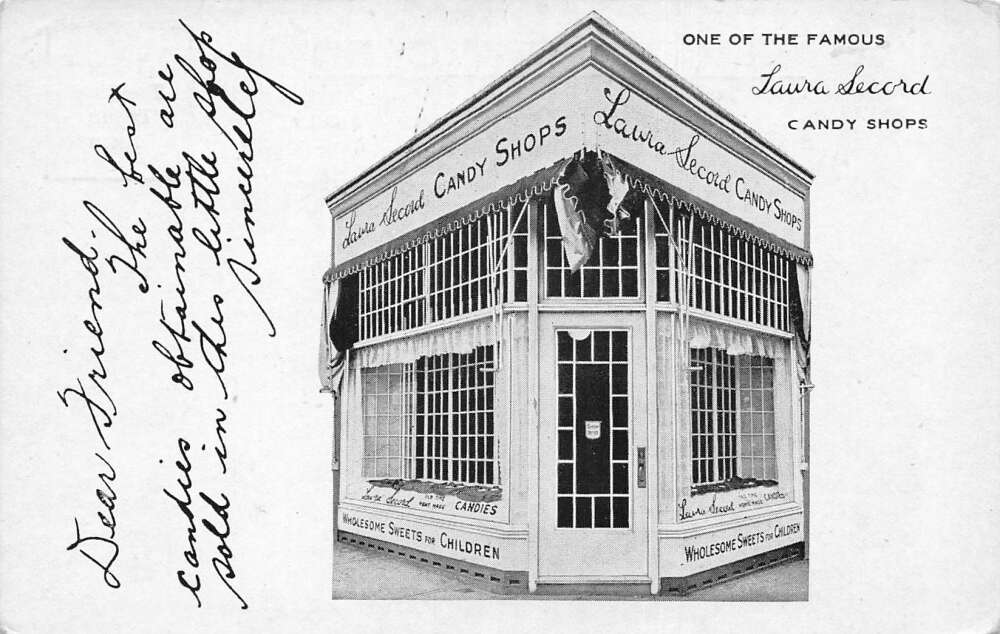 ONE OF THE FAMOUS
Laura Secord
CANDY SHOPS
Laura Secord CANDY SHOPS
Laura Secord CANDY SHOPS
Laura Secord OLD TIME HOME MADE CANDIES
Laura Secord OLD TIME HOME MADE CANDIES
WHOLESOME SWEETS FOR CHILDREN
WHOLESOME SWEETS FOR CHILDREN
Dear Friend.
The best
candies obtainable are
sold in this little shop
sincerely